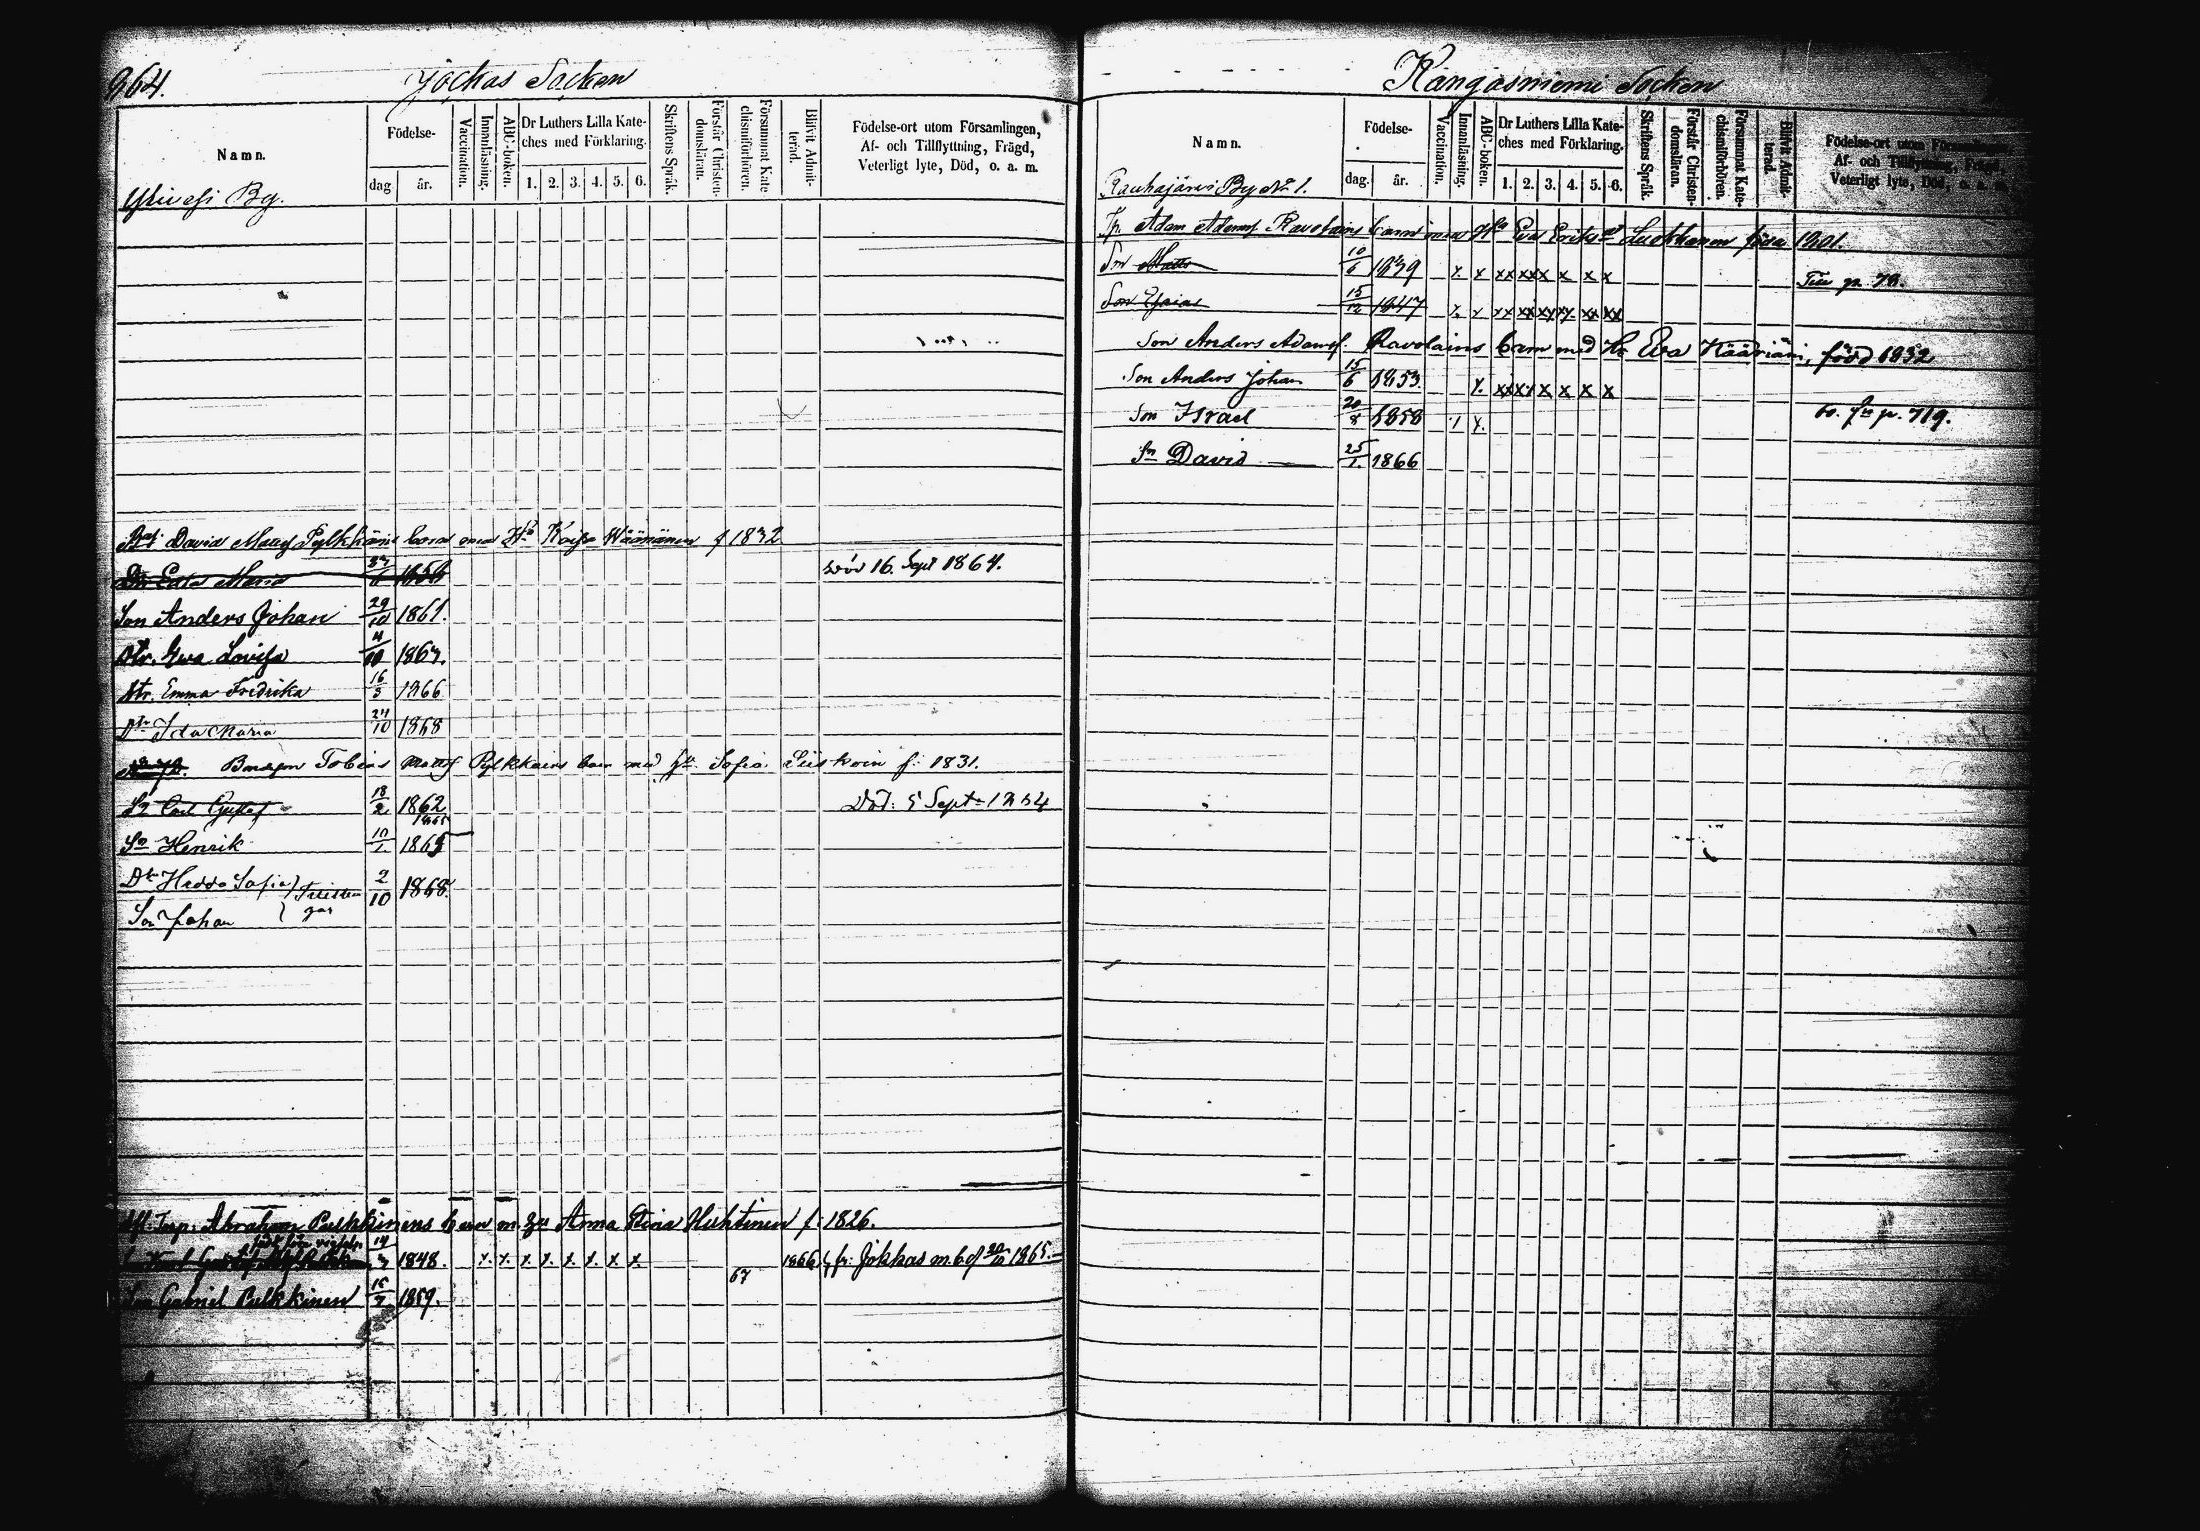 964.
Jockas Socken
Namn.
Födelse-
dag
år.
Vaccination.
Innanläsning.
ABC-boken.
Dr Luthers Lilla Kate-
ches med Förklaring.
1. 2. 3. 4. 5. 6.
Skriftens Språk.
Förstår Christen-
domsläran.
Försummat Kate-
chismiförhören.
Blifvit Admit-
terad.
Födelse-ort utom Församlingen,
Af- och Tillflyttning, Frägd,
Veterligt lyte, Död, o. a. m.
By.
David Matts Pylkkäns barn med Kaisa Wäänänen f 1832
Maria 1858 död 16. Sept 1864.
Son Anders Johan 29/10 1861.
Dtr. Ewa Lovisa 4/10 1863.
Dtr. Emma Fredrika 16/3 1866
Dtr Ida Maria 24/10 1868
Tobias Matts Pylkkäins barn med Sofia f: 1831.
Sn Carl Gustaf 18/2 1862 Död: 5 Sept 1864
1865
Sn Henrik 10/1 1865
Dtr Hedda Sofia 2/10 1868.
Son Johan
Abraham Pulkkinens barn m. Anna Stina Huhtinen f. 1826.
1848. x. x. x. x. x. x. x. x. 1866 fr. Jokkas m. b. 1865.
67
Son Gabriel Pulkkinen 15/7 1859.
Kangasniemi Socken
Namn.
Födelse-
dag.
år.
Vaccination.
Innanläsning.
ABC-boken.
Dr Luthers Lilla Kate-
ches med Förklaring.
1. 2. 3. 4. 5. 6.
Skriftens Språk.
Förstår Christen-
domsläran.
Försummat Kate-
chismiförhören.
Blifvit Admit-
terad.
Födelse-ort utom Församlingen,
Af- och Tillflyttning, Frägd,
Veterligt lyte, Död, o. a. m.
Rauhajärvi By No 1.
Adam Adams Ravolains barn med Eva Eriksdr föda 1801.
Son Matts 10/6 1839 x. x xx xxx x x x p. 78.
Son Esaias 15/12 1847
Son Anders Adams. Ravolains barn med Eva Kääriäin, född 1832
Son Anders Johan 15/6 1853. x. xx xx x x x x
Son Israel 20/8 1858 p. 719.
Sn David 25/1. 1866